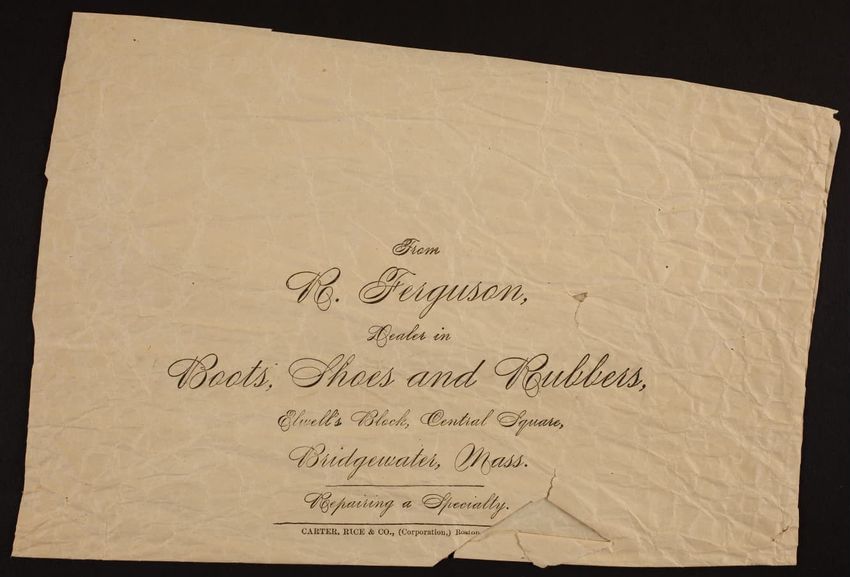 From
R. Ferguson,
Dealer in
Boots, Shoes and Rubbers,
Elwell's Block, Central Square,
Bridgewater, Mass.
Repairing a Specialty.
CARTER, RICE & CO., (Corporation,) Boston